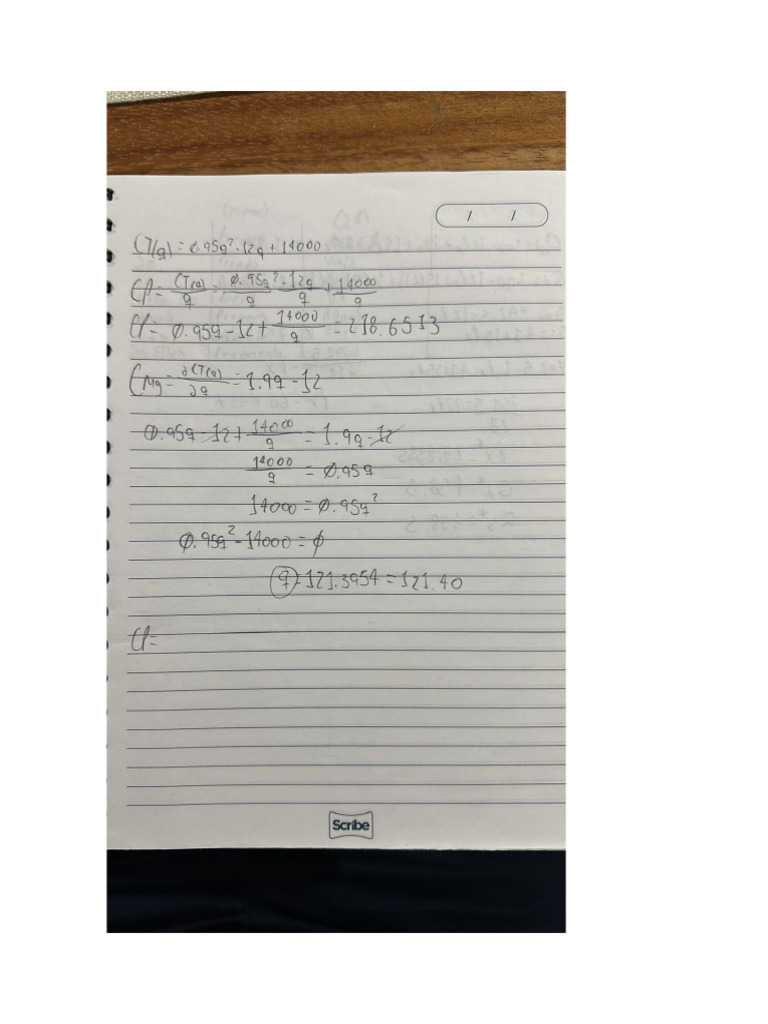 / /
CT(q) = 0.95q² - 12q + 14000
CP = CT(q)/q = 0.95q²/q - 12q/q + 14000/q
CP = 0.95q - 12 + 14000/q = 218.6513
CMg = ∂CT(q)/∂q = 1.9q - 12
0.95q - 12 + 14000/q = 1.9q - 12
14000/q = 0.95q
14000 = 0.95q²
0.95q² - 14000 = 0
q = 121.3954 = 121.40
CP =
Scribe